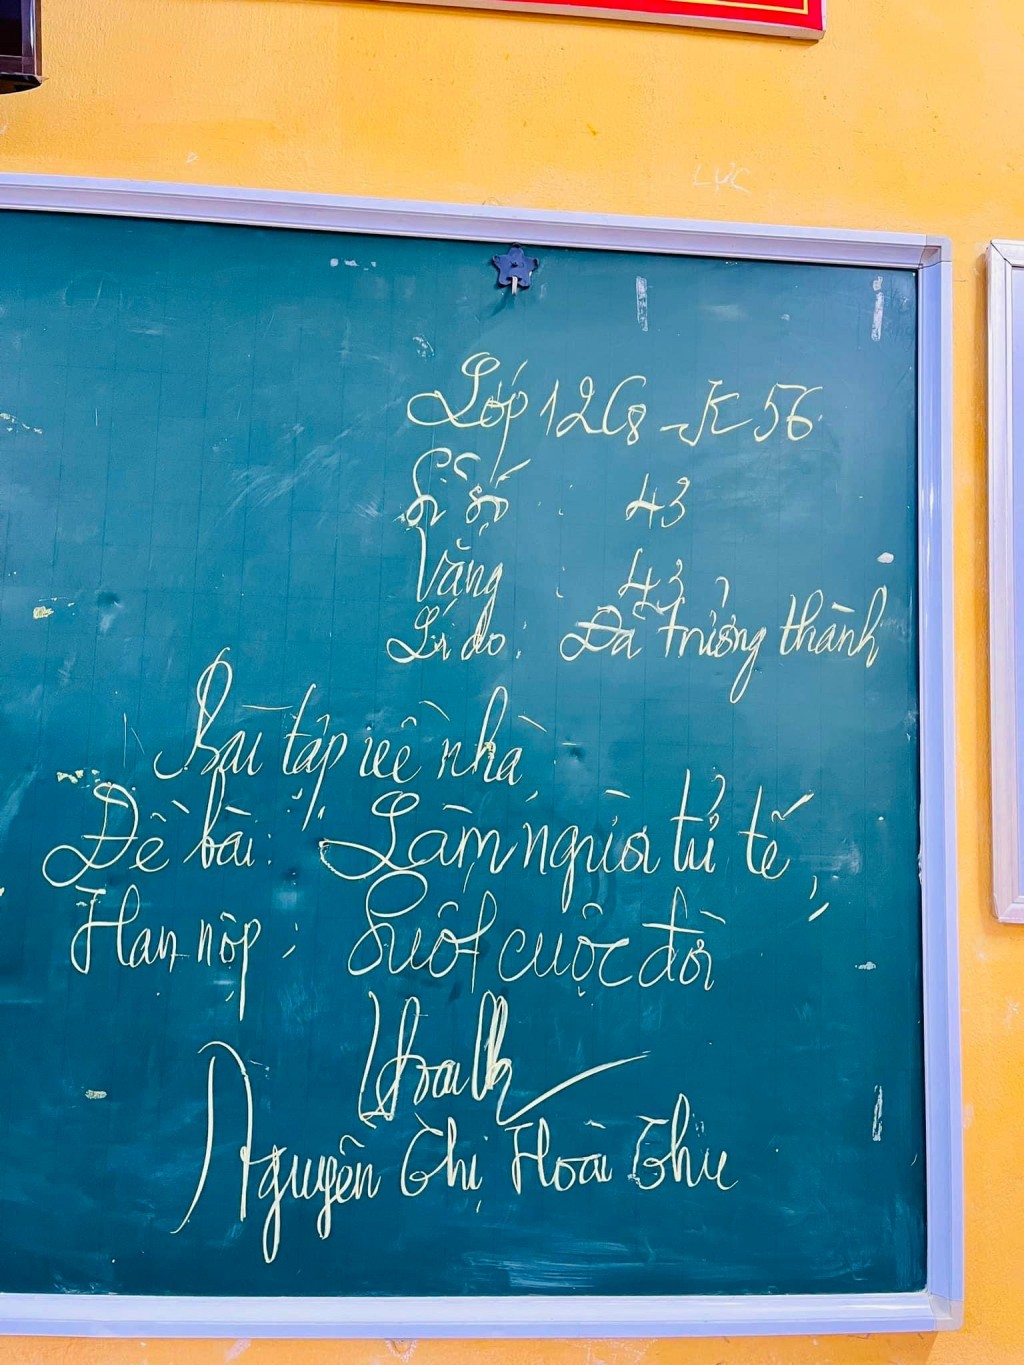 LỰC
Lớp 12C8 - K56
Sĩ số : 43
Vắng : 43
Lí do : Đã trưởng thành
Bài tập về nhà
Đề bài: "Làm người tử tế"
Hạn nộp : Suốt cuộc đời
Nguyễn Thị Hoài Thu